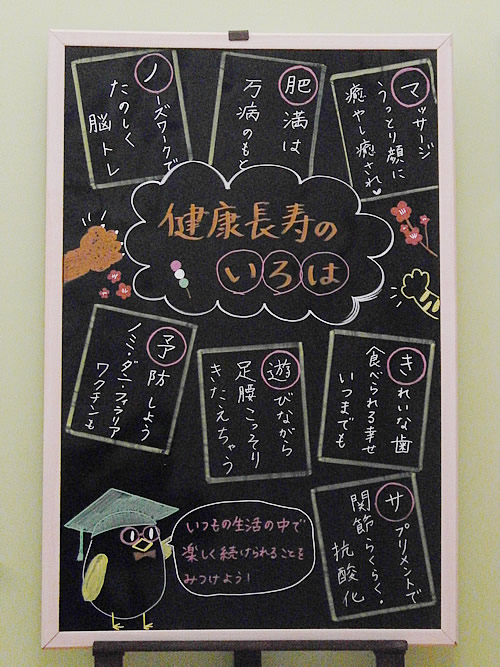 マッサージ
うっとり顔に
癒やし癒され♥
肥満は
万病のもと
ノーズワークで
たのしく
脳トレ
健康長寿の
いろは
きれいな歯
食べられる幸せ
いつまでも
遊びながら
足腰こっそり
きたえちゃう
予防しよう
ノミ・ダニ・フィラリア
ワクチンも
サプリメントで
関節らくらく・
抗酸化
いつもの生活の中で
楽しく続けられることを
みつけよう!